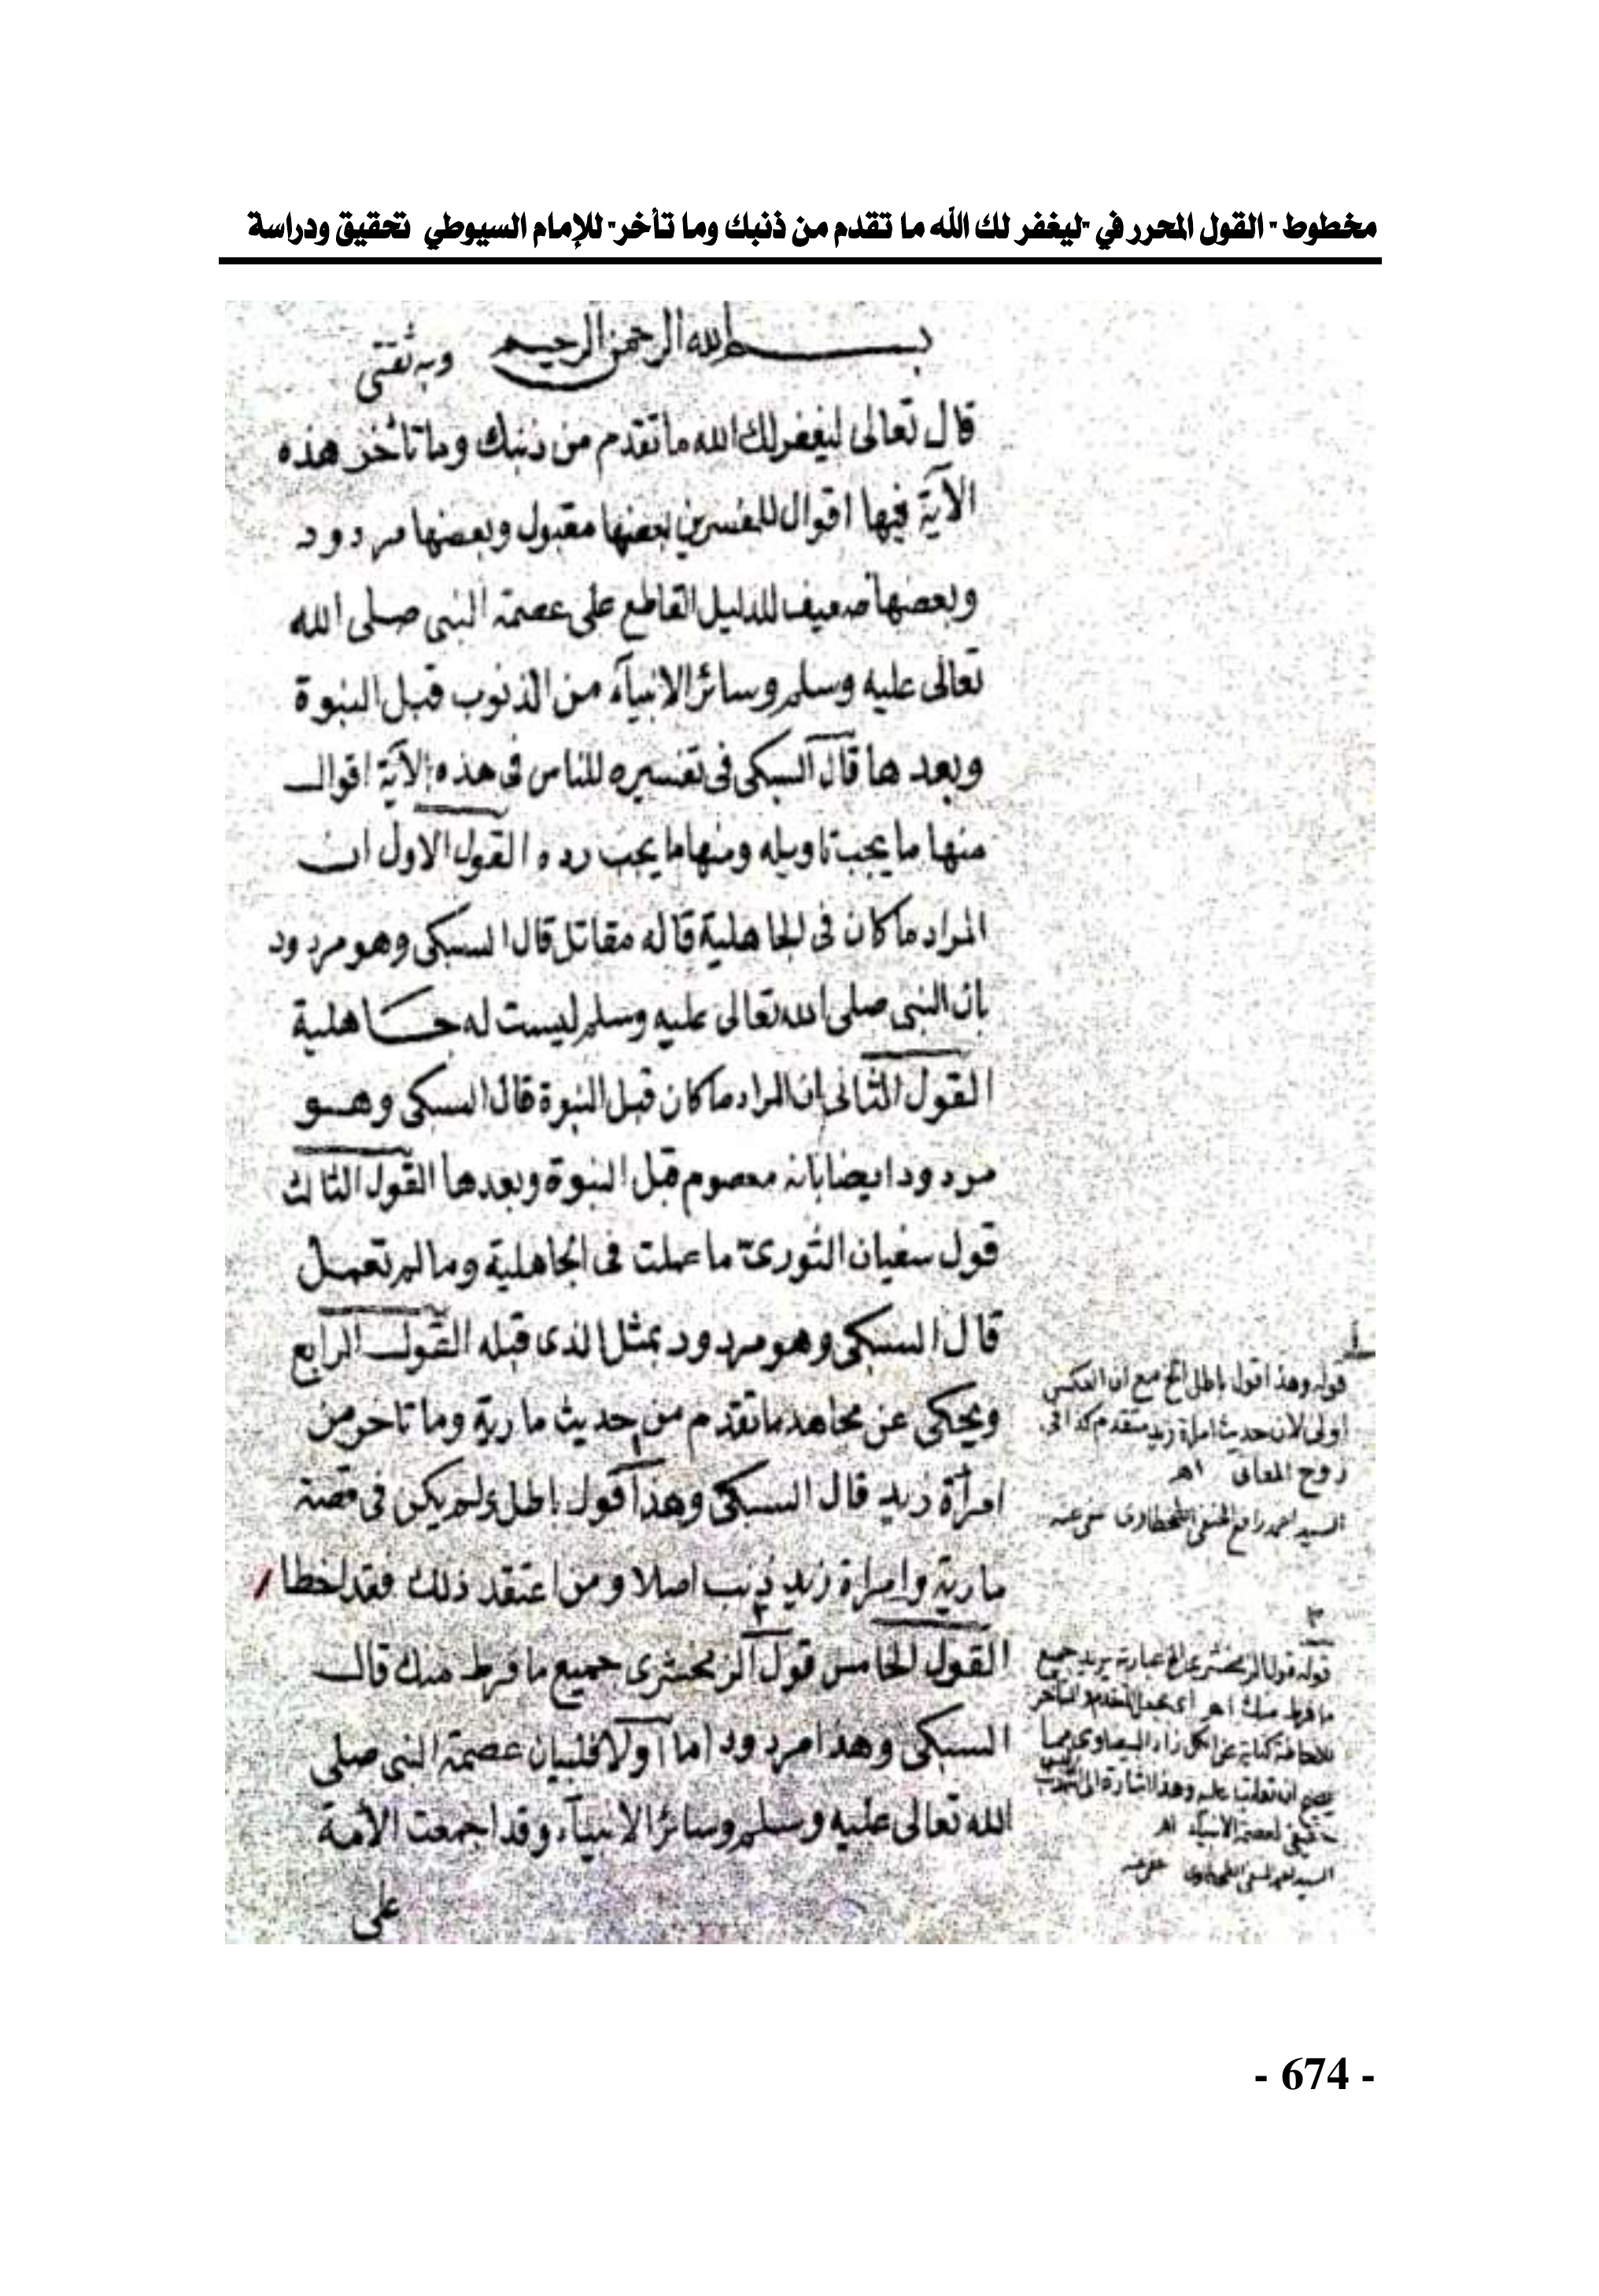 مخطوط - القول المحرر في "ليغفر لك الله ما تقدم من ذنبك وما تأخر" للإمام السيوطي تحقيق ودراسة
بسم الله الرحمن الرحيم وبه ثقتى
قال تعالى ليغفر لك الله ما تقدم من ذنبك وما تأخر هذه
الآية فيها اقوال للمفسرين بعضها مقبول وبعضها مردود
وبعضها ضعيف للدليل القاطع على عصمة النبى صلى الله
تعالى عليه وسلم وسائر الانبيآء من الذنوب قبل النبوة
وبعدها قال السبكى فى تفسيره للناس فى هذه الآية اقوال
منها ما يجب تاويله ومنها ما يجب رده القول الاول ان
المراد ما كان فى الجاهلية قاله مقاتل قال السبكى وهو مردود
بان النبى صلى الله تعالى عليه وسلم ليست له جاهلية
القول الثانى ان المراد ما كان قبل النبوة قال السبكى وهو
مردود ايضا بانه معصوم قبل النبوة وبعدها القول الثالث
قول سفيان الثورى ما عملت فى الجاهلية وما لم تعمل
قال السبكى وهو مردود بمثل الذى قبله القول الرابع
ويحكى عن مجاهد ما تقدم من حديث مارية وما تاخر من
امرأة زيد قال السبكى وهذا قول باطل ولم يكن فى قصة
مارية وامراة زيد ذنب اصلا ومن اعتقد ذلك فقد اخطا
القول الخامس قول الزمخشرى جميع ما فرط منك قال
السبكى وهذا مردود اما اولا فلبيان عصمة النبى صلى
الله تعالى عليه وسلم وسائر الانبيآء وقد اجمعت الأمة
على
١
قوله وهذا قول باطل الخ مع ان العكس
اولى لان حديث امراة زيد متقدم كذا فى
روح المعانى اهـ
السيد احمد رافع الحنفى الطحطاوى عفى عنه
٢
قوله قول الزمخشرى الخ عبارته يريد جميع
ما فرط منك اهـ اى المتقدم والمتأخر
للاحاطة كناية عن الكل زاد البيضاوى مما
يصح ان تعاتب عليه وهذا اشارة الى
لعصمة الانبيآء اهـ
السيد الطحطاوى عفى عنه
- 674 -